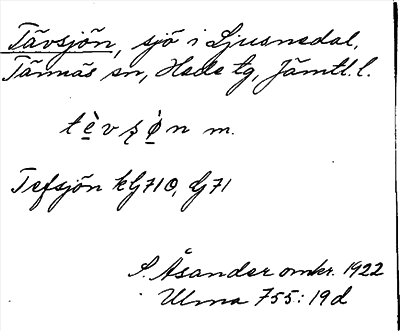 Tävsjön, sjö i Ljusnedal,
Tännäs sn, Hede tg, Jämtl. l.
tè̱vʂø̱̀n m.
Tefsjön kG71Ö, G71
S. Åsander omkr. 1922
Ulma 755:19d